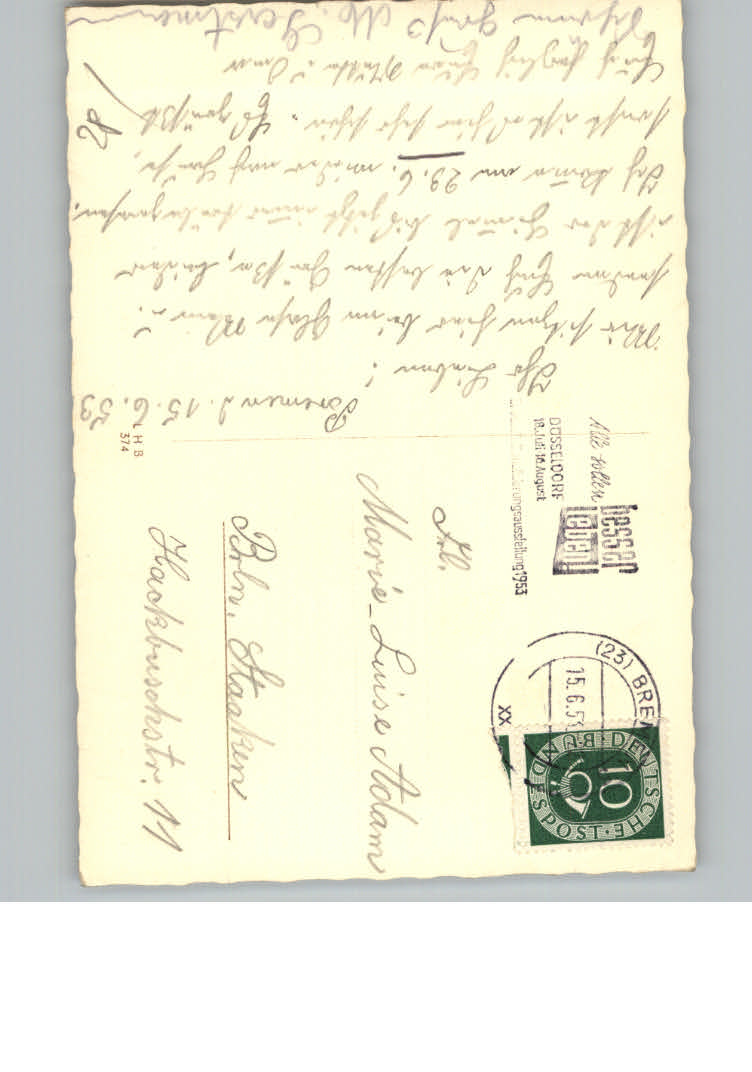 Bremen d. 15.6.53
Ihr Lieben!
Wir sitzen hier beim Glase Wein u.
senden Euch die besten Grüße, leider
ist der Himmel bis jetzt immer
Ich komme am 23.6. wieder nach Hause,
sonst ist es hier sehr schön. Es grüßt
Euch herzlich Eure
L H B
374
Alle sollen
besser
leben!
DÜSSELDORF
18. Juli-16. August
1953
(23) BREM
15.6.53
XX
DEUTSCHE BUNDESPOST
10
Frl.
Marie-Luise Adam
Brln. Staaken
Hackbuschstr. 11